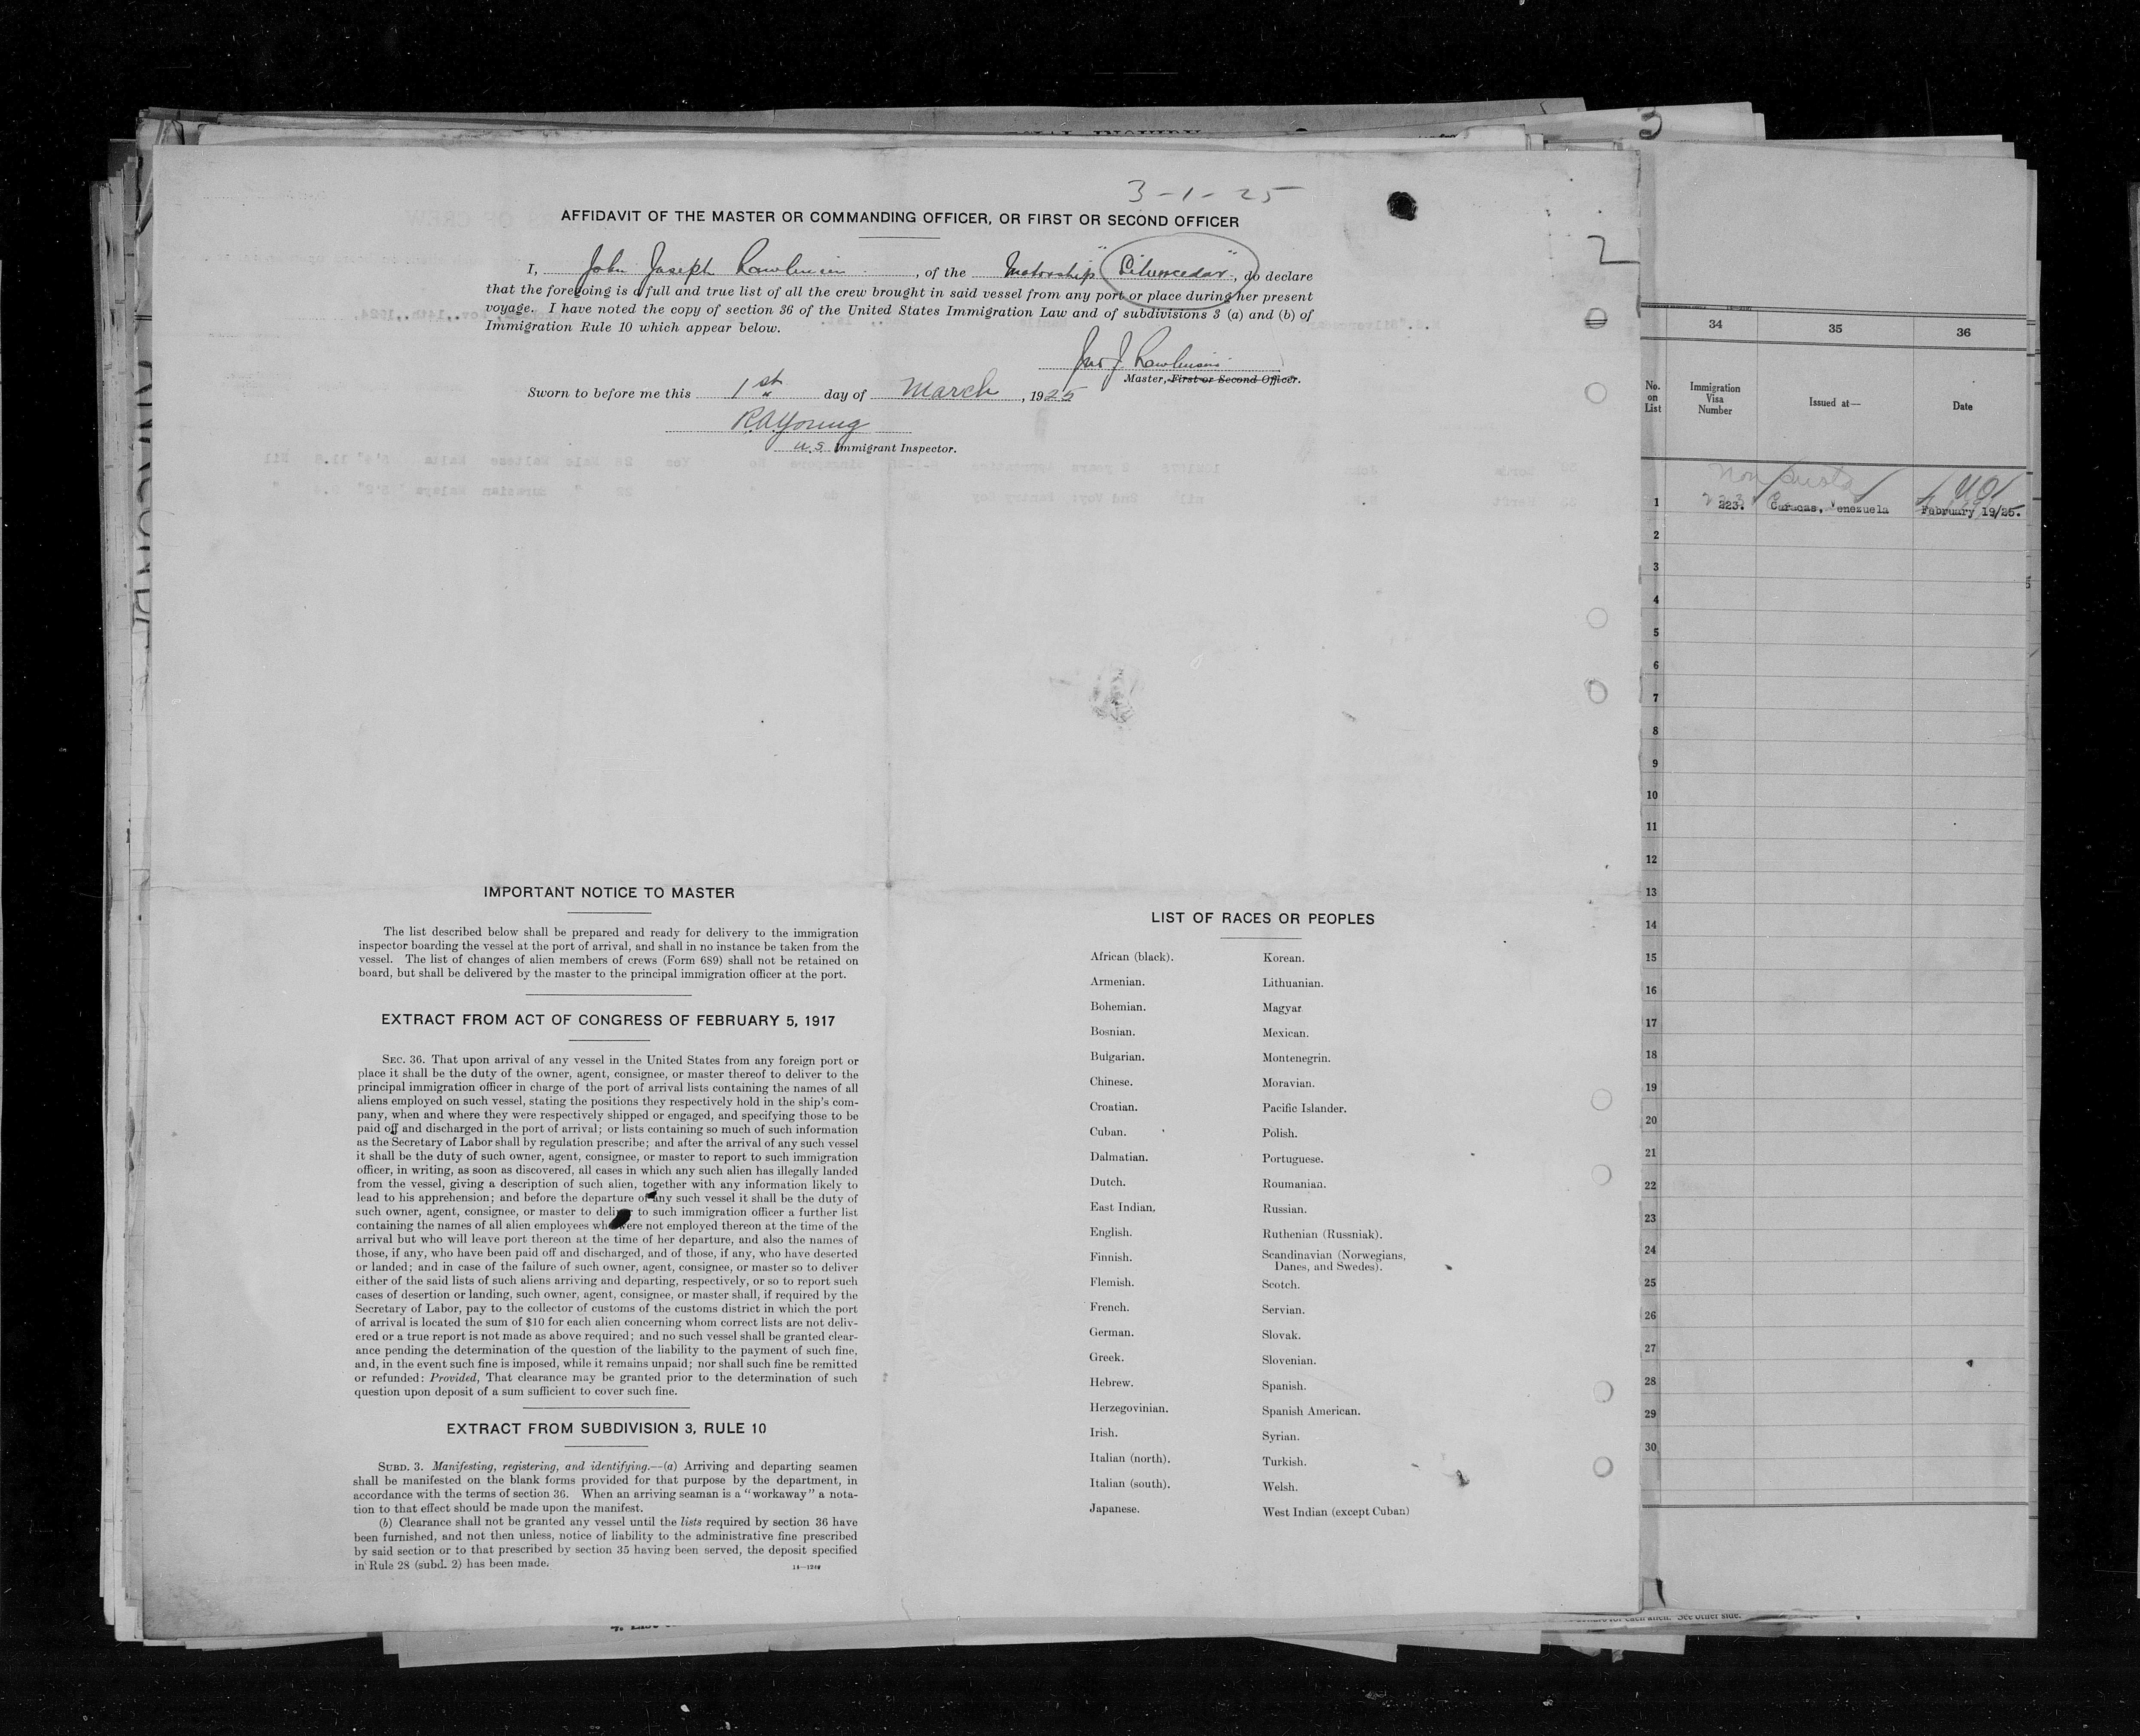 3-1-25
AFFIDAVIT OF THE MASTER OR COMMANDING OFFICER, OR FIRST OR SECOND OFFICER
2
I, John Joseph Rawlinson, of the Motorship "Silvercedar", do declare
that the foregoing is a full and true list of all the crew brought in said vessel from any port or place during her present
voyage. I have noted the copy of section 36 of the United States Immigration Law and of subdivisions 3 (a) and (b) of
Immigration Rule 10 which appear below.
Jno J. Rawlinson
Master, First or Second Officer.
Sworn to before me this 1st day of March, 1925
R.A. Young
U.S. Immigrant Inspector.
IMPORTANT NOTICE TO MASTER
The list described below shall be prepared and ready for delivery to the immigration
inspector boarding the vessel at the port of arrival, and shall in no instance be taken from the
vessel. The list of changes of alien members of crews (Form 689) shall not be retained on
board, but shall be delivered by the master to the principal immigration officer at the port.
EXTRACT FROM ACT OF CONGRESS OF FEBRUARY 5, 1917
SEC. 36. That upon arrival of any vessel in the United States from any foreign port or
place it shall be the duty of the owner, agent, consignee, or master thereof to deliver to the
principal immigration officer in charge of the port of arrival lists containing the names of all
aliens employed on such vessel, stating the positions they respectively hold in the ship's com-
pany, when and where they were respectively shipped or engaged, and specifying those to be
paid off and discharged in the port of arrival; or lists containing so much of such information
as the Secretary of Labor shall by regulation prescribe; and after the arrival of any such vessel
it shall be the duty of such owner, agent, consignee, or master to report to such immigration
officer, in writing, as soon as discovered, all cases in which any such alien has illegally landed
from the vessel, giving a description of such alien, together with any information likely to
lead to his apprehension; and before the departure of any such vessel it shall be the duty of
such owner, agent, consignee, or master to deliver to such immigration officer a further list
containing the names of all alien employees who were not employed thereon at the time of the
arrival but who will leave port thereon at the time of her departure, and also the names of
those, if any, who have been paid off and discharged, and of those, if any, who have deserted
or landed; and in case of the failure of such owner, agent, consignee, or master so to deliver
either of the said lists of such aliens arriving and departing, respectively, or so to report such
cases of desertion or landing, such owner, agent, consignee, or master shall, if required by the
Secretary of Labor, pay to the collector of customs of the customs district in which the port
of arrival is located the sum of $10 for each alien concerning whom correct lists are not deliv-
ered or a true report is not made as above required; and no such vessel shall be granted clear-
ance pending the determination of the question of the liability to the payment of such fine,
and, in the event such fine is imposed, while it remains unpaid; nor shall such fine be remitted
or refunded: Provided, That clearance may be granted prior to the determination of such
question upon deposit of a sum sufficient to cover such fine.
EXTRACT FROM SUBDIVISION 3, RULE 10
SUBD. 3. Manifesting, registering, and identifying.—(a) Arriving and departing seamen
shall be manifested on the blank forms provided for that purpose by the department, in
accordance with the terms of section 36. When an arriving seaman is a "workaway" a nota-
tion to that effect should be made upon the manifest.
(b) Clearance shall not be granted any vessel until the lists required by section 36 have
been furnished, and not then unless, notice of liability to the administrative fine prescribed
by said section or to that prescribed by section 35 having been served, the deposit specified
in Rule 28 (subd. 2) has been made.
LIST OF RACES OR PEOPLES
African (black).
Armenian.
Bohemian.
Bosnian.
Bulgarian.
Chinese.
Croatian.
Cuban.
Dalmatian.
Dutch.
East Indian.
English.
Finnish.
Flemish.
French.
German.
Greek.
Hebrew.
Herzegovinian.
Irish.
Italian (north).
Italian (south).
Japanese.
Korean.
Lithuanian.
Magyar
Mexican.
Montenegrin.
Moravian.
Pacific Islander.
Polish.
Portuguese.
Roumanian.
Russian.
Ruthenian (Russniak).
Scandinavian (Norwegians,
Danes, and Swedes).
Scotch.
Servian.
Slovak.
Slovenian.
Spanish.
Spanish American.
Syrian.
Turkish.
Welsh.
West Indian (except Cuban)
3
34 35 36
No. on List
Immigration Visa Number
Issued at—
Date
Non quota
1 223. Caracas, Venezuela February 19/25.
2
3
4
5
6
7
8
9
10
11
12
13
14
15
16
17
18
19
20
21
22
23
24
25
26
27
28
29
30
See other side.